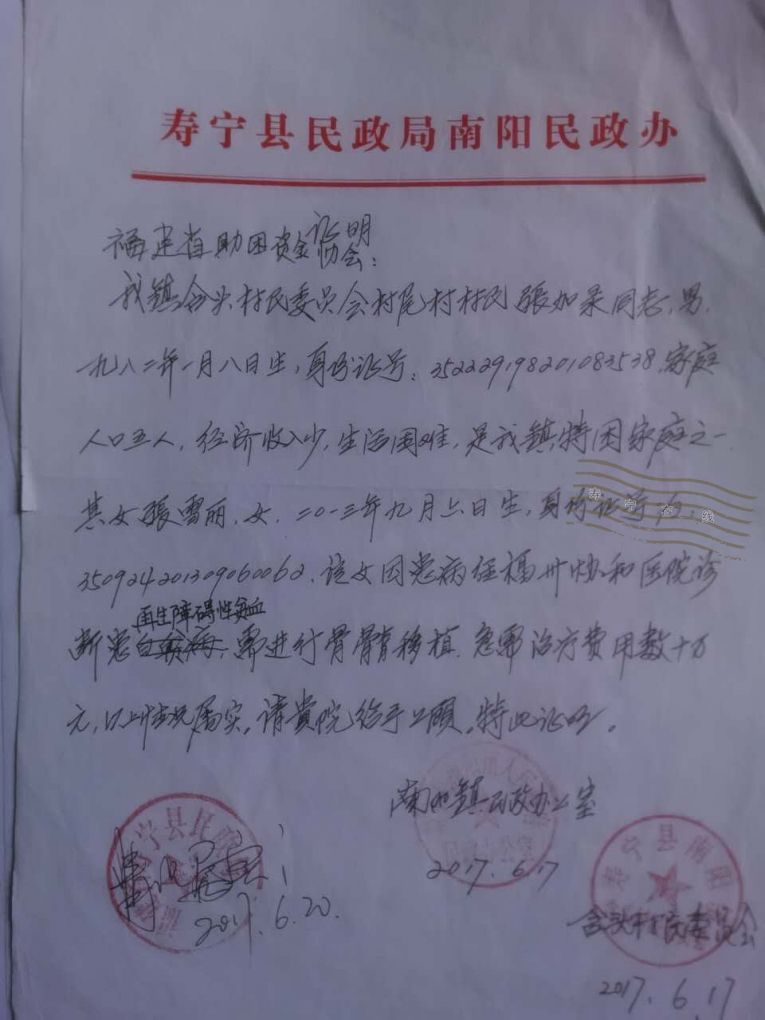 寿宁县民政局南阳民政办
证明
福建省助困资金协会:
我镇含头村民委员会村尾村村民張加录同志,男,
九八二年一月八日生,身份证号:352229198201083538,家庭
人口五人,经济收入少,生活困难,是我镇特困家庭之一
其女張雪丽,女,二0一三年九月六日生,身份证号为:
350924201309060062,该女因患病经福州协和医院诊
再生障碍性贫血
断患白血病,需进行骨髓移植,急需治疗费用数十万
元,以上情况属实,请貴院给予照顾,特此证明。
南阳镇民政办公室
2017.6.17
2017.6.20.
寿宁县南阳
含头村民委员会
2017.6.17
寿宁在线